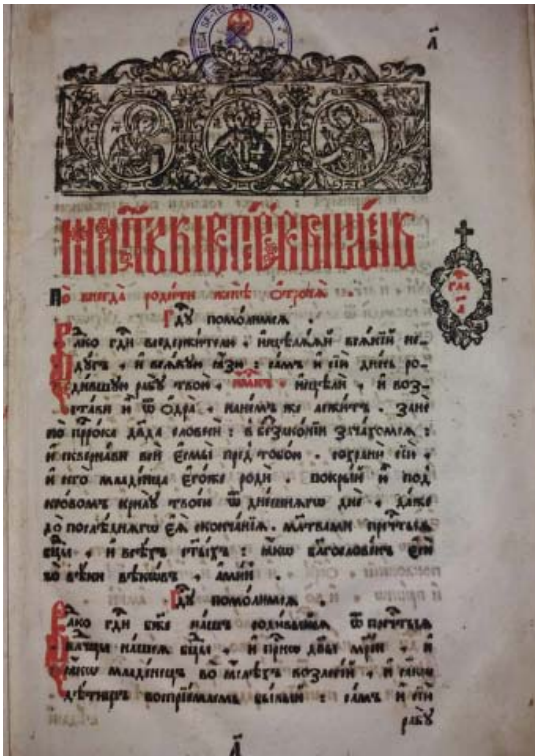 л҃
М҃ЛТВЫ
По внегда родити женѣ ѻтроча .
Гд҃у помолимсѧ .
ко гд҃и вседержителю . и҆сцѣлѧѧй всѧкїй не-
дугъ . и҆ всѧкую ꙗ҆зю : самъ и҆ сїю днесь ро-
дившую рабу твою , и҆мкъ . и҆сцѣли . и҆ воз-
стави ю ѿ о҆дра . на немъ же лежитъ . зане
по прⷪ҇рока дв҃да словеси : в беззаконїи зачахомсѧ :
и҆ сквернави вси є҆смы пред тобою . сохрани сїю ,
и҆ сего младенца є҆гоже роди . покрый ю под
кровомъ крилу твоєю ѿ днешнѧгѡ дне , даже
до послѣднѧгѡ є҆ѧ скончанїѧ . мл҃твами преч҇тыѧ
бц҃ы , и҆ всѣхъ ст҃ыхъ : ꙗ҆кѡ бл҃гословенъ є҆си
во вѣки вѣкѡвъ аминь .
Гд҃у помолимсѧ .
ко гд҃и бж҃е нашъ родивыйсѧ ѿ преч҇тыѧ
вл҃чцы нашеѧ бц҃ы , и҆ приснѡ дв҃ы мр҃їи . и҆
ꙗ҆кѡ младенецъ во ꙗ҆слехъ возлегїй , и҆ ꙗ҆кѡ
дѣтищъ воспрїемлемъ бывый : самъ и҆ сїю
рабу
л҃